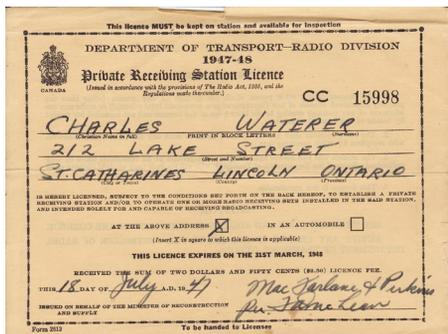 This licence MUST be kept on station and available for inspection
DEPARTMENT OF TRANSPORT—RADIO DIVISION
1947-48
Private Receiving Station Licence
CANADA
(Issued in accordance with the provisions of The Radio Act, 1938, and the
Regulations made thereunder.)
CC 15998
CHARLES WATERER
(Christian Name in full) PRINT IN BLOCK LETTERS (Surname)
212 LAKE STREET
(Street and Number)
ST. CATHARINES LINCOLN ONTARIO
(City or Town) (County) (Province)
IS HEREBY LICENSED, SUBJECT TO THE CONDITIONS SET FORTH ON THE BACK HEREOF, TO ESTABLISH A PRIVATE
RECEIVING STATION AND/OR TO OPERATE ONE OR MORE RADIO RECEIVING SETS INSTALLED IN THE SAID STATION, AND
INTENDED SOLELY FOR AND CAPABLE OF RECEIVING BROADCASTING.
AT THE ABOVE ADDRESS X IN AN AUTOMOBILE
(Insert X in square to which this licence is applicable)
THIS LICENCE EXPIRES ON THE 31ST MARCH, 1948
RECEIVED THE SUM OF TWO DOLLARS AND FIFTY CENTS ($2.50) LICENCE FEE.
THIS 18 DAY OF July A.D. 1947
MacFarlane & Perkins
ISSUED ON BEHALF OF THE MINISTER OF RECONSTRUCTION
AND SUPPLY
Per.
Form 2613
To be handed to Licensee